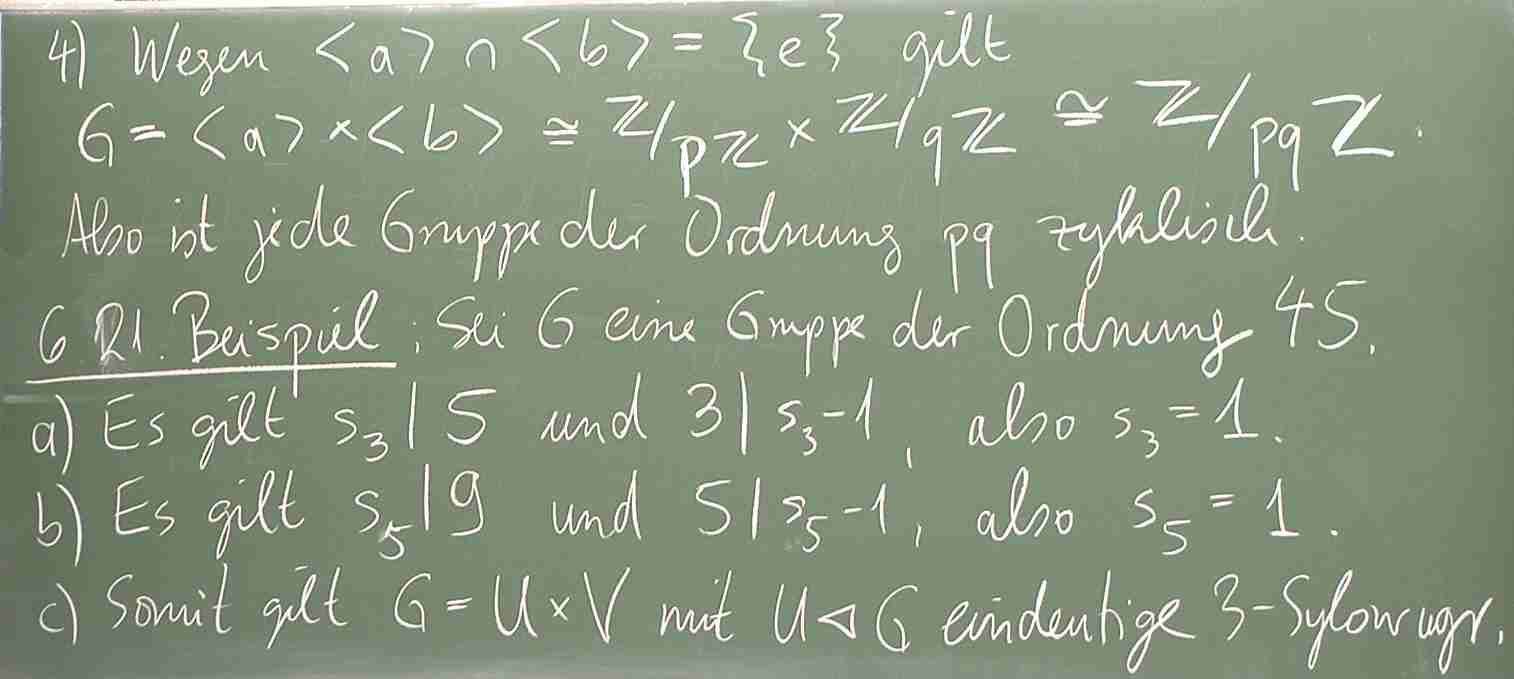 4) Wegen <a> ∩ <b> = {e} gilt
G = <a> × <b> ≅ ℤ/pℤ × ℤ/qℤ ≅ ℤ/pqℤ.
Also ist jede Gruppe der Ordnung pq zyklisch.
6.21. Beispiel: Sei G eine Gruppe der Ordnung 45.
a) Es gilt s₃ | 5 und 3 | s₃-1, also s₃ = 1.
b) Es gilt s₅ | 9 und 5 | s₅-1, also s₅ = 1.
c) Somit gilt G = U × V mit U ⊲ G eindeutige 3-Sylowugr.